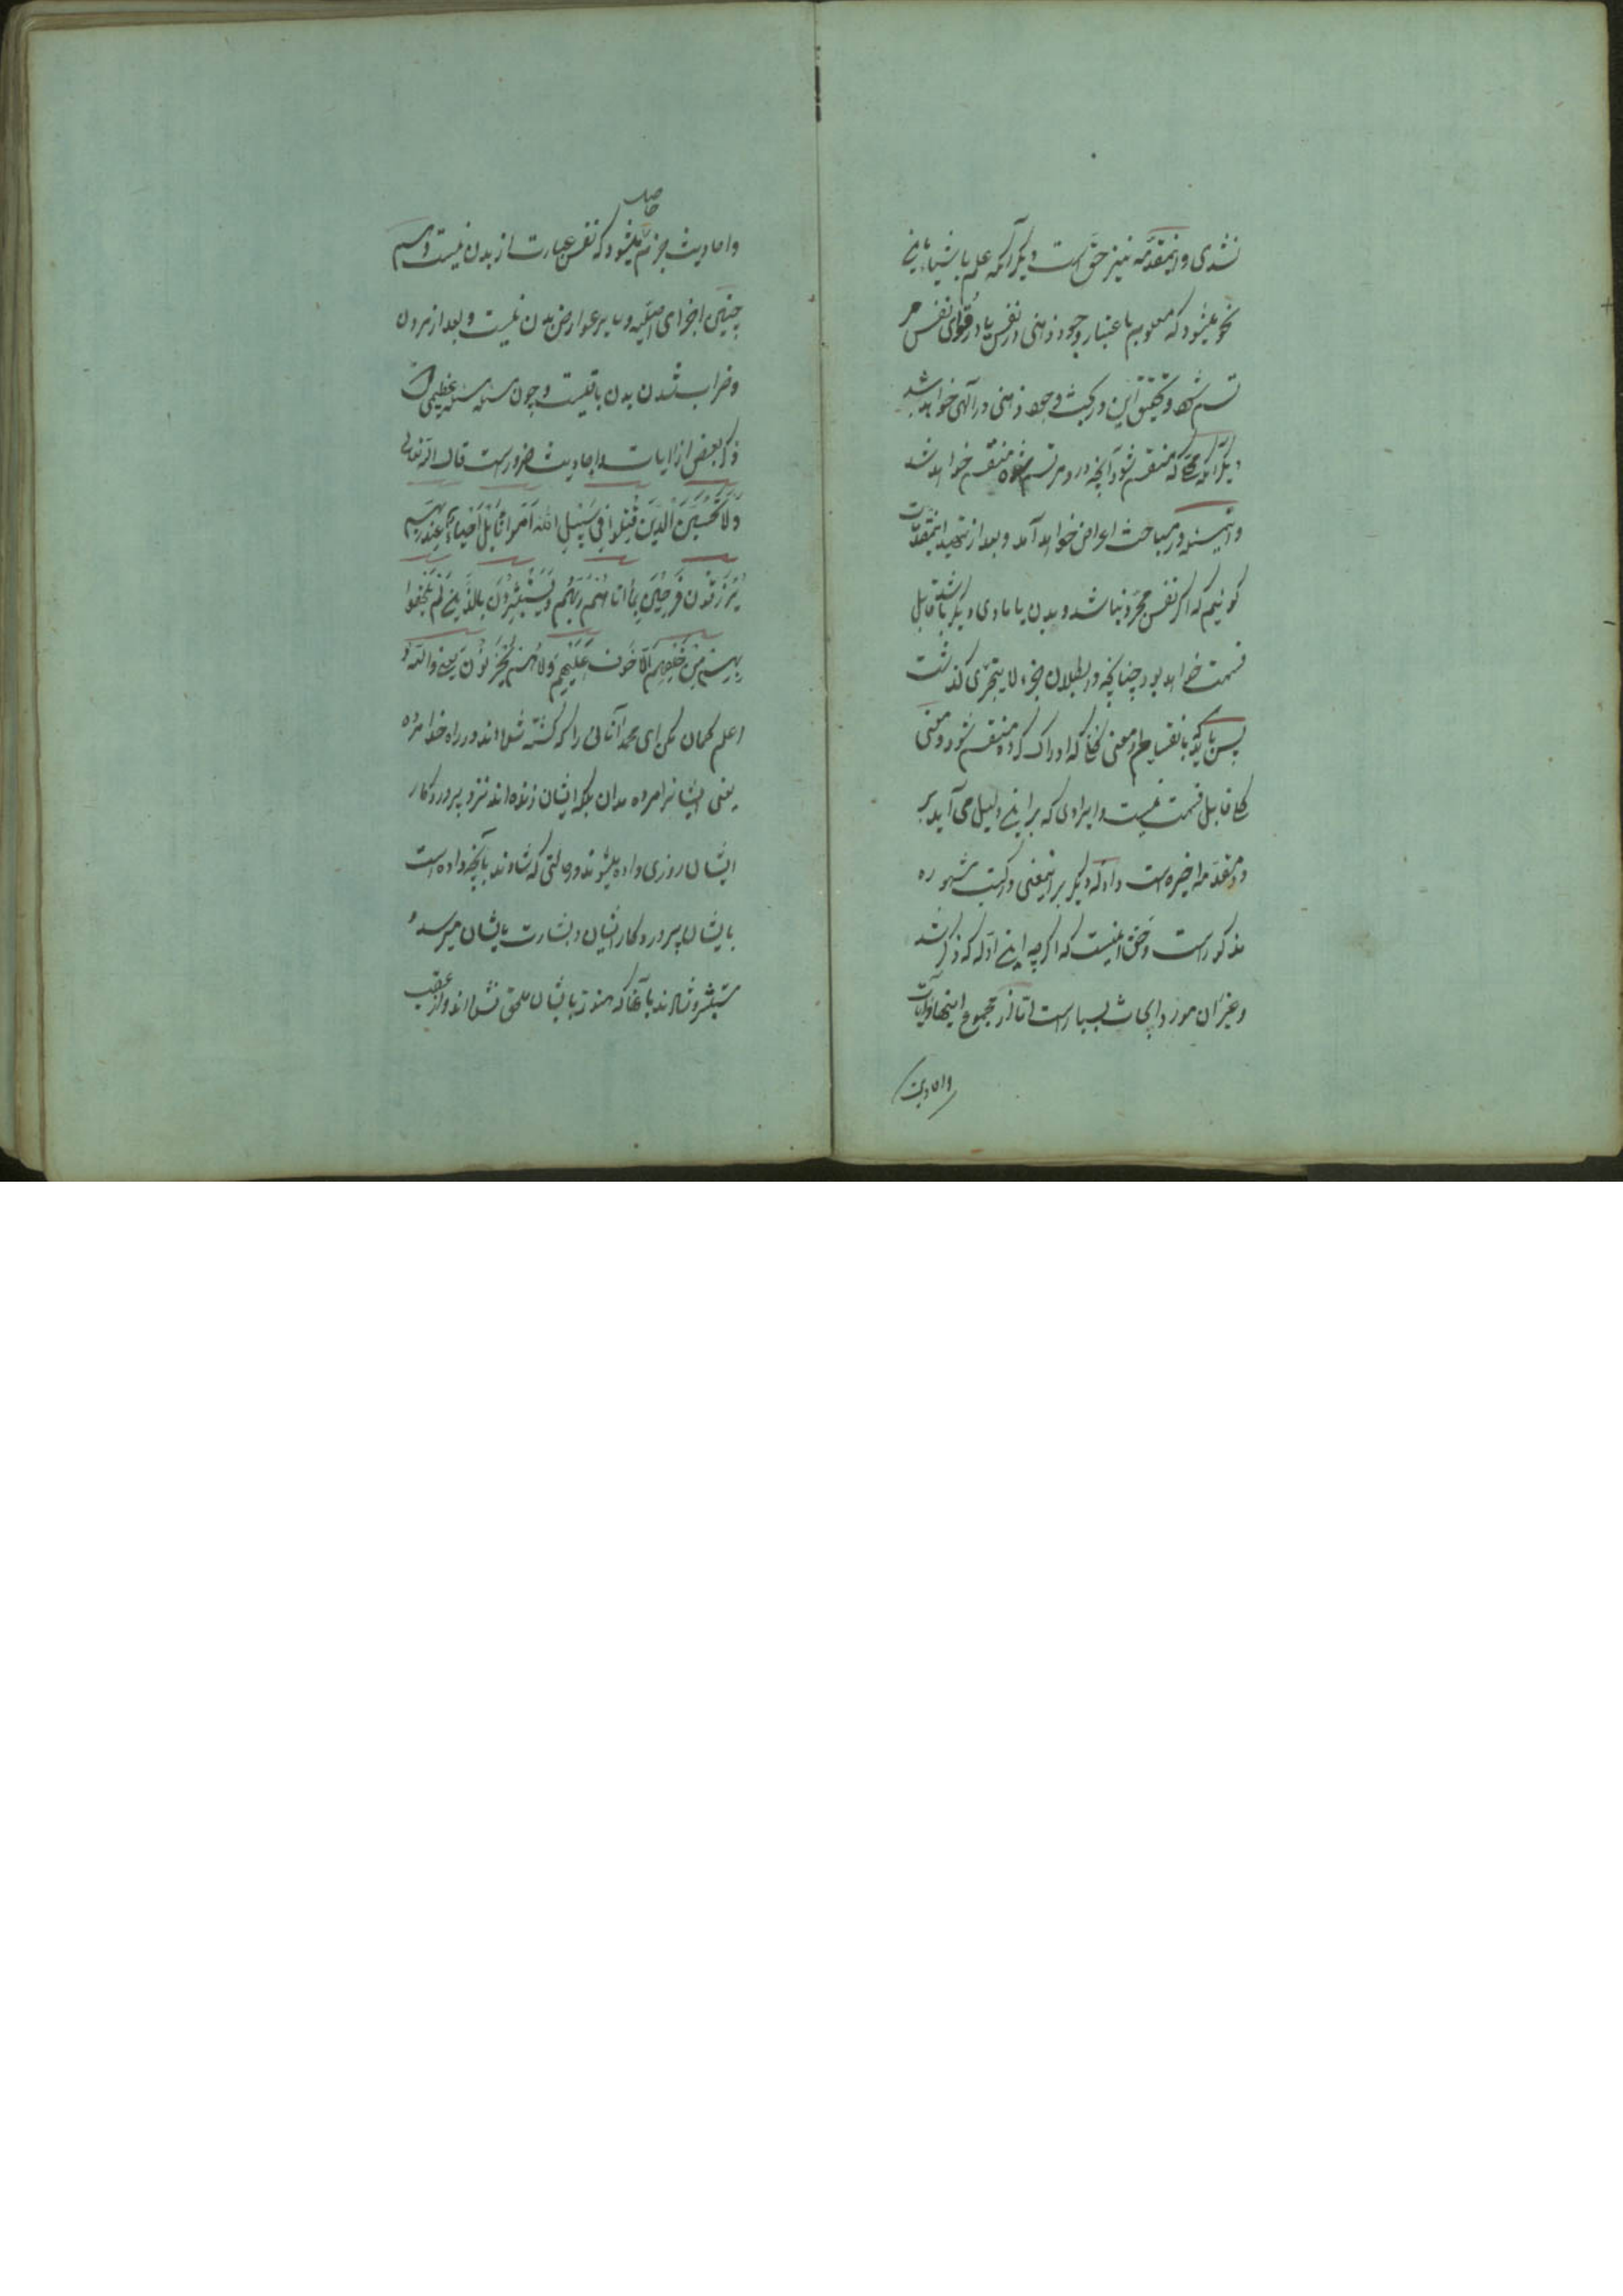 نشدی و اینمقدمه نیز حق است دیگر آنکه علم باشیا باین
نحو میشود که معلوم باعتبار وجود ذهنی در نفس یا در قوای نفس مر
تسم شود و تحقیق این در بحث وجود ذهنی در الهی خواهد شد
دیگر آنکه محلی که منقسم شود آنچه در او مرتسم شود منقسم خواهد شد
و این مسئله در مباحث اعراض خواهد آمد و بعد از تمهید اینمقدمات
گوئیم که اگر نفس مجرد نباشد و بدن یا مادی دیگر باشد قابل
قسمت خواهد بود چنانچه در بطلان جزء لا یتجزی گذشت
پس باید که بانقسام او معنی کلی که ادراک کرده منقسم شود و معنی
کلی قابل قسمت نیست و ایرادی که بر این دلیل می آید بر
دو مقدمه اخیره است و ادله دیگر بر اینمعنی در کتب مشهوره
مذکور است و حق اینست که اگر چه این ادله که ذکر شد
و غیر آن مورد ابحاث بسیار است اما از مجموع اینها و آیات
و احادیث
حاصل
و احادیث جزم میشود که نفس عبارت از بدن نیست و هم
چنین اجزای اصلیه و سایر عوارض بدن نیست و بعد از مردن
و خراب شدن بدن باقیست و چون این مسئله مسئله عظیمی است
ذکر بعض از آیات و احادیث ضرور است قال الله تعالی
وَلَا تَحْسَبَنَّ الَّذِينَ قُتِلُوا فِي سَبِيلِ اللهِ أَمْوَاتًا بَلْ أَحْيَاءٌ عِنْدَ رَبِّهِمْ
يُرْزَقُونَ فَرِحِينَ بِمَا آتَاهُمْ رَبُّهُمْ وَيَسْتَبْشِرُونَ بِالَّذِينَ لَمْ يَلْحَقُوا
بِهِمْ مِنْ خَلْفِهِمْ أَلَّا خَوْفٌ عَلَيْهِمْ وَلَا هُمْ يَحْزَنُونَ یعنی و الله
اعلم گمان مکن ای محمد آنانی را که کشته شده اند در راه خدا مرده
یعنی ایشانرا مرده مدان بلکه ایشان زنده اند نزد پروردگار
ایشان روزی داده میشوند در حالتی که شادند بآنچه داده است
بایشان پروردگار ایشان و بشارت بایشان میرسد و
مستبشر و شادند بآنها که هنوز بایشان ملحق نشده اند و از عقب